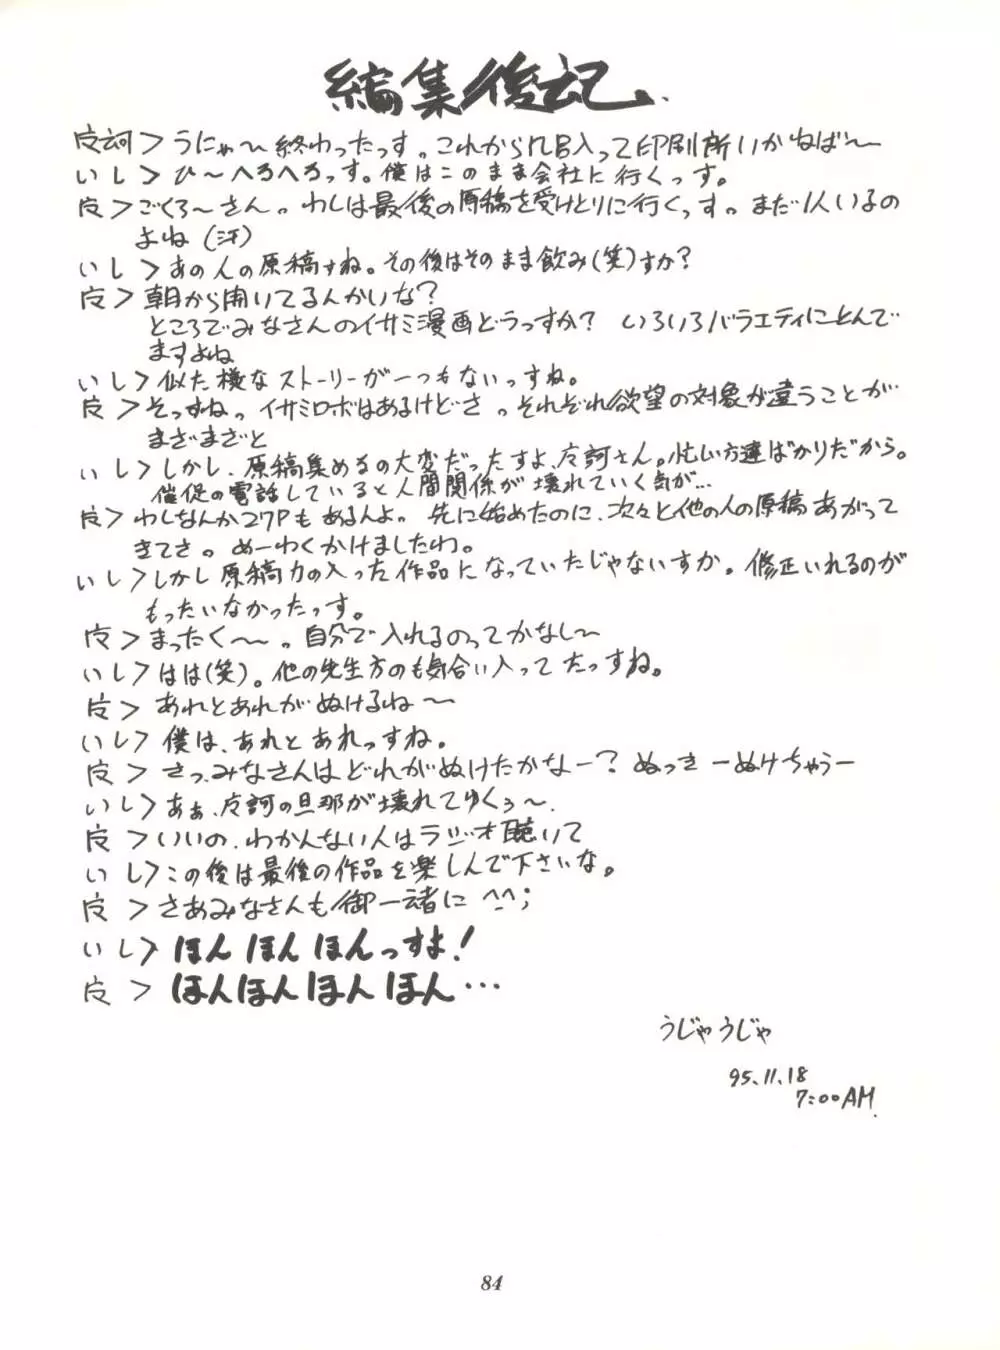 編集後記.
＞うにゃ〜終わったっす。これから風呂入って印刷所いかねば〜
いし＞ひ〜へろへろっす。僕はこのまま会社に行くっす。
＞ごくろ〜さん。わしは最後の原稿を受けとりに行くっす。まだ1人いるの
よね(汗)
いし＞あの人の原稿すね。その後はそのまま飲み(笑)すか?
＞朝から開いてるんかいな?
ところでみなさんのイサミ漫画どうっすか? いろいろバラエティにとんで
ますよね
いし＞似た様なストーリーが一つもないっすね。
＞そっすね。イサミロボはあるけどさ。それぞれ欲望の対象が違うことが
まざまざと
いし＞しかし、原稿集めるの大変だったすよ、左訶さん。忙しい方達ばかりだから。
催促の電話していると人間関係が壊れていく気が…
＞わしなんか27Pもあるんよ。先に始めたのに、次々と他の人の原稿あがって
きてさ。めーわくかけましたわ。
いし＞しかし原稿力の入った作品になっていたじゃないすか。修正いれるのが
もったいなかったっす。
＞まったく〜〜。自分で入れるのってかなし〜
いし＞はは(笑)。他の先生方のも気合い入ってたっすね。
＞あれとあれがぬけるね〜
いし＞僕は、あれとあれっすね。
＞さっ、みなさんはどれがぬけたかなー? ぬっきーぬけちゃうー
いし＞あぁ、左訶の旦那が壊れてゆくぅ〜.
＞いいの、わかんない人はラジオ聴いて
いし＞この後は最後の作品を楽しんで下さいな。
＞さあみなさんも御一緒に ^-^;
いし＞ほんほんほんっすよ!
＞ほんほんほんほん…
うじゃうじゃ
95.11.18
7:00AM.
84